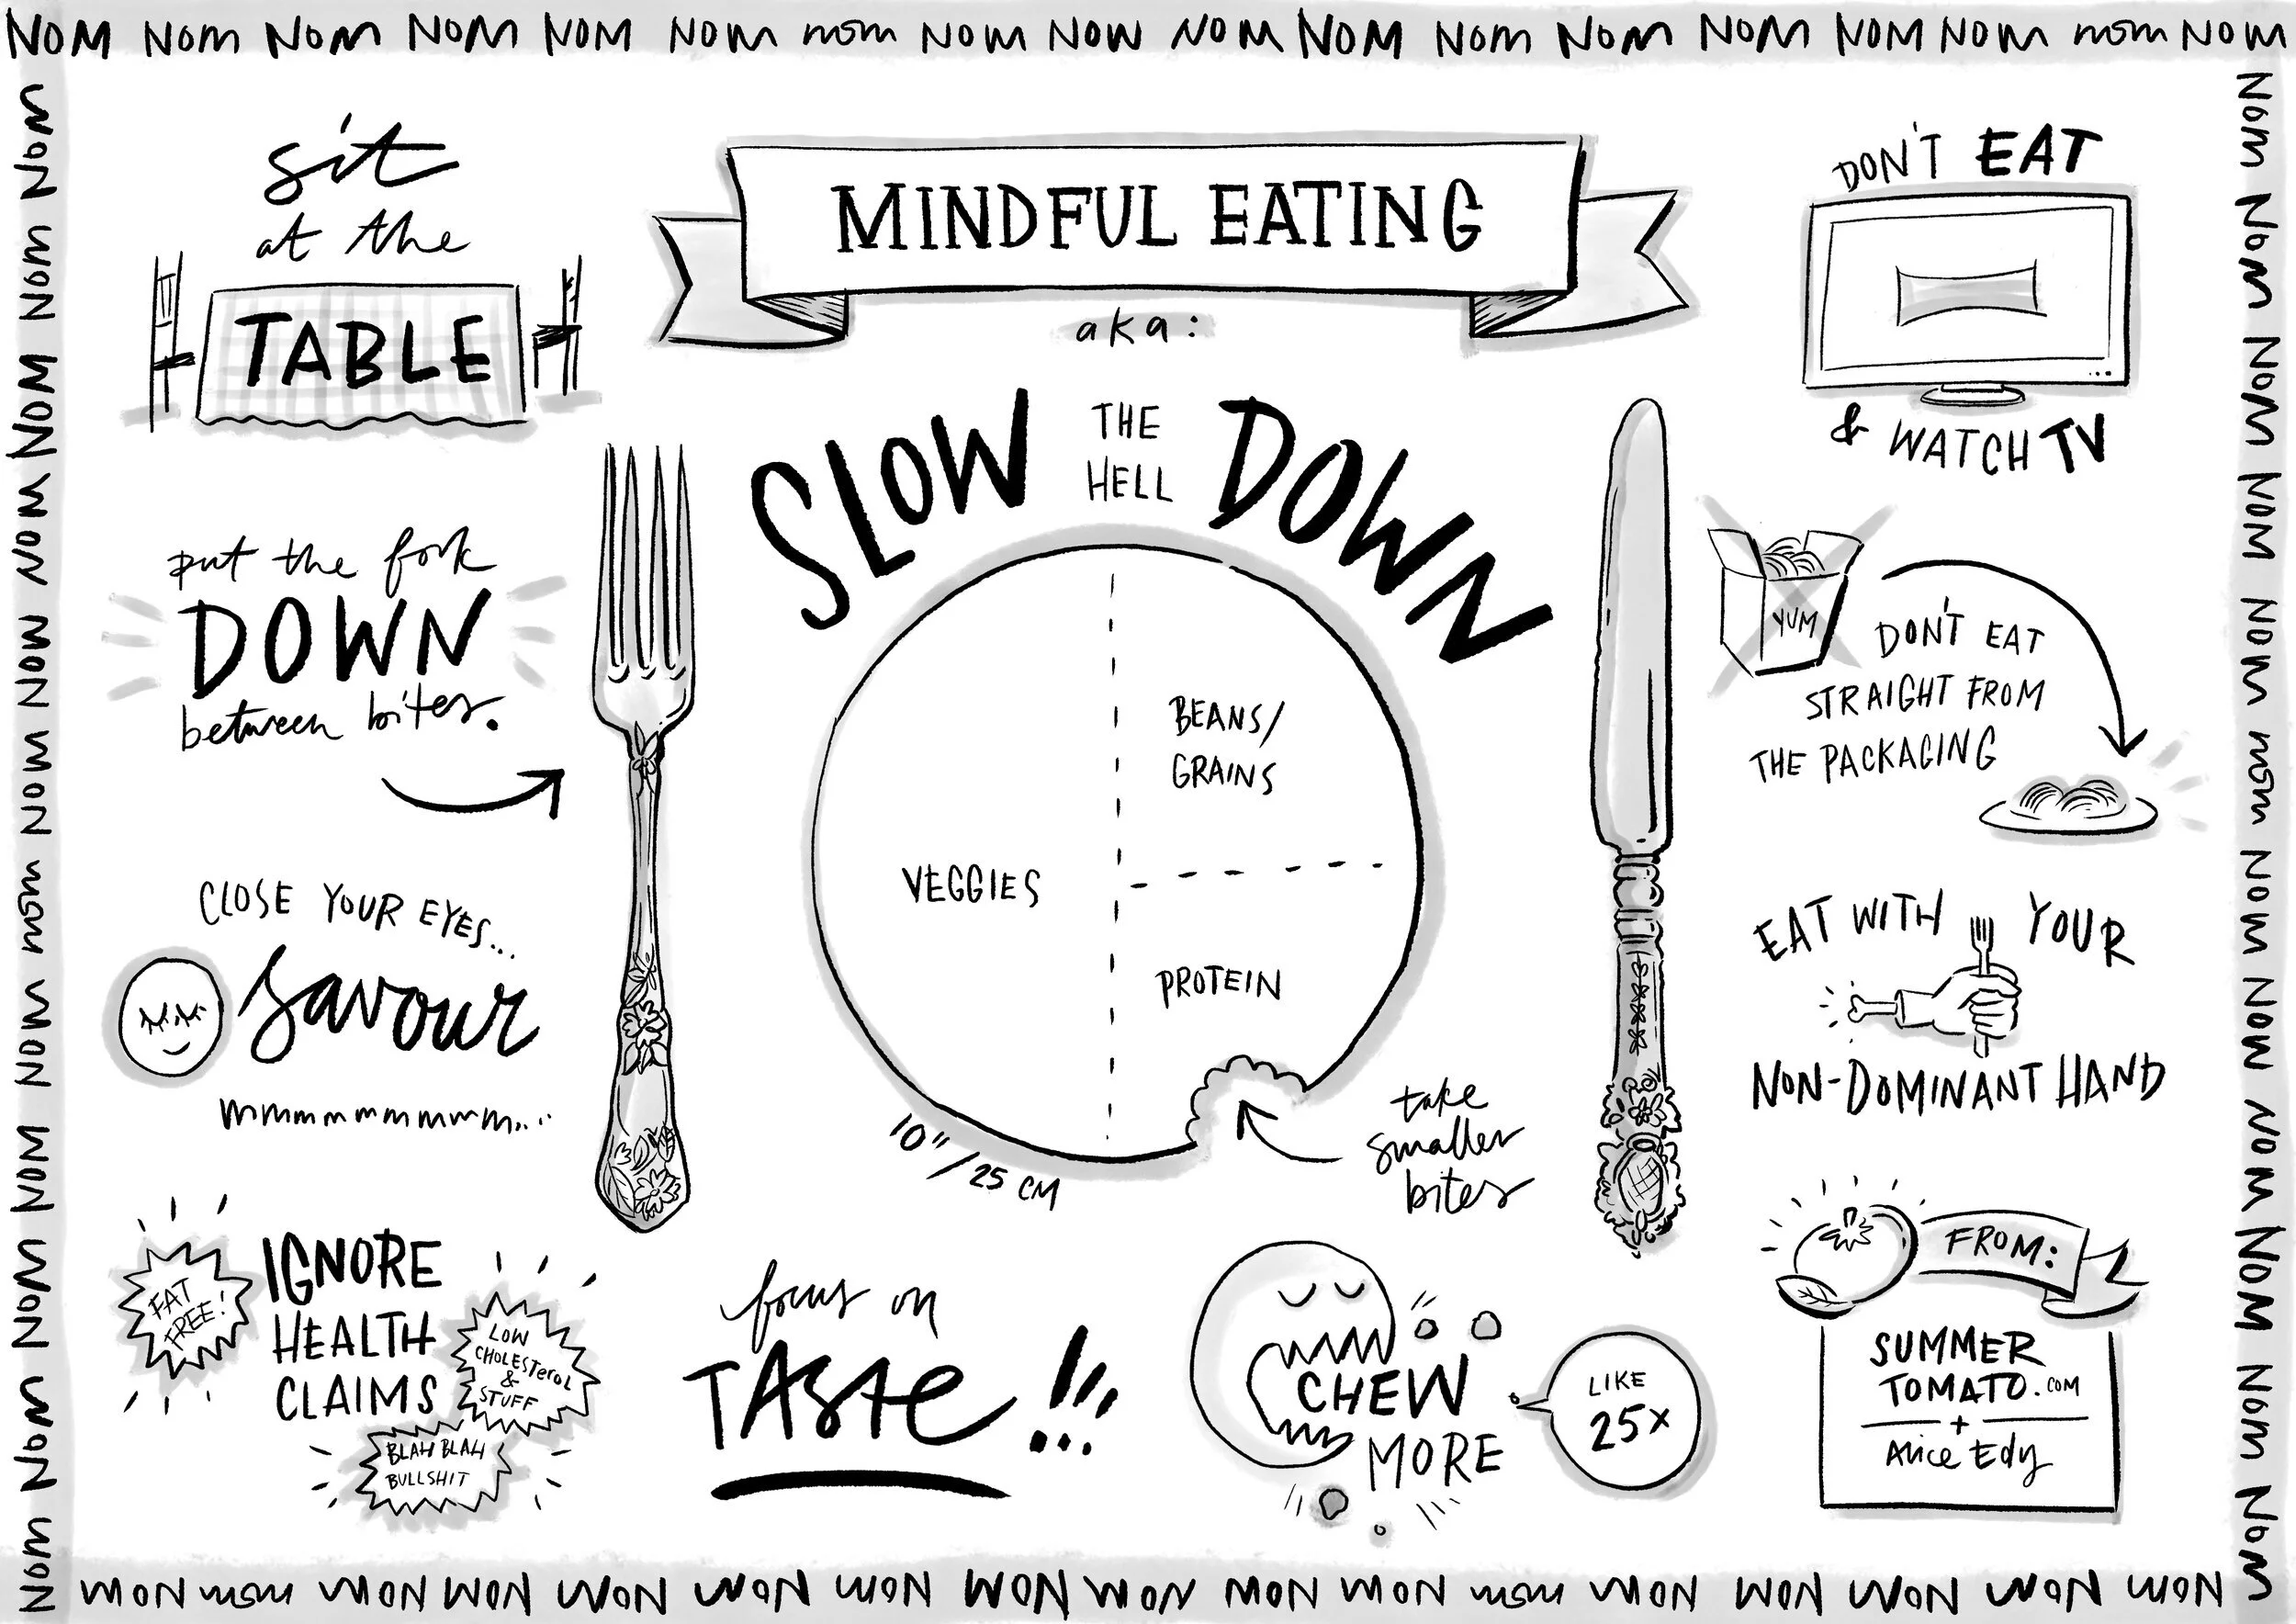 NOM NOM NOM NOM NOM NOM nom NOM NOM NOM NOM NOM NOM NOM NOM NOM nom NOM
sit
at the
TABLE
MINDFUL EATING
aka:
SLOW THE HELL DOWN
DON'T EAT
& WATCH TV
put the fork
DOWN
between bites.
YUM
DON'T EAT
STRAIGHT FROM
THE PACKAGING
BEANS/
GRAINS
VEGGIES
PROTEIN
10"/25 CM
take
smaller
bites
CLOSE YOUR EYES...
savour
mmmmmmmmmm...
EAT WITH YOUR
NON-DOMINANT HAND
FAT
FREE!
IGNORE
HEALTH
CLAIMS
LOW
CHOLESTerol
&
STUFF
BLAH BLAH
BULLSHIT
focus on
TASTE!!!
CHEW
MORE
LIKE
25x
FROM:
SUMMER
TOMATO.COM
+
Alice Edy
NOM NOM NOM NOM NOM NOM NOM nom NOM NOM NOM NOM NOM
NOM NOM NOM NOM NOM nom NOM NOM NOM NOM NOM NOM NOM
NOM nom NOM NOM NOM NOM NOM NOM NOM NOM NOM nom NOM NOM NOM NOM NOM